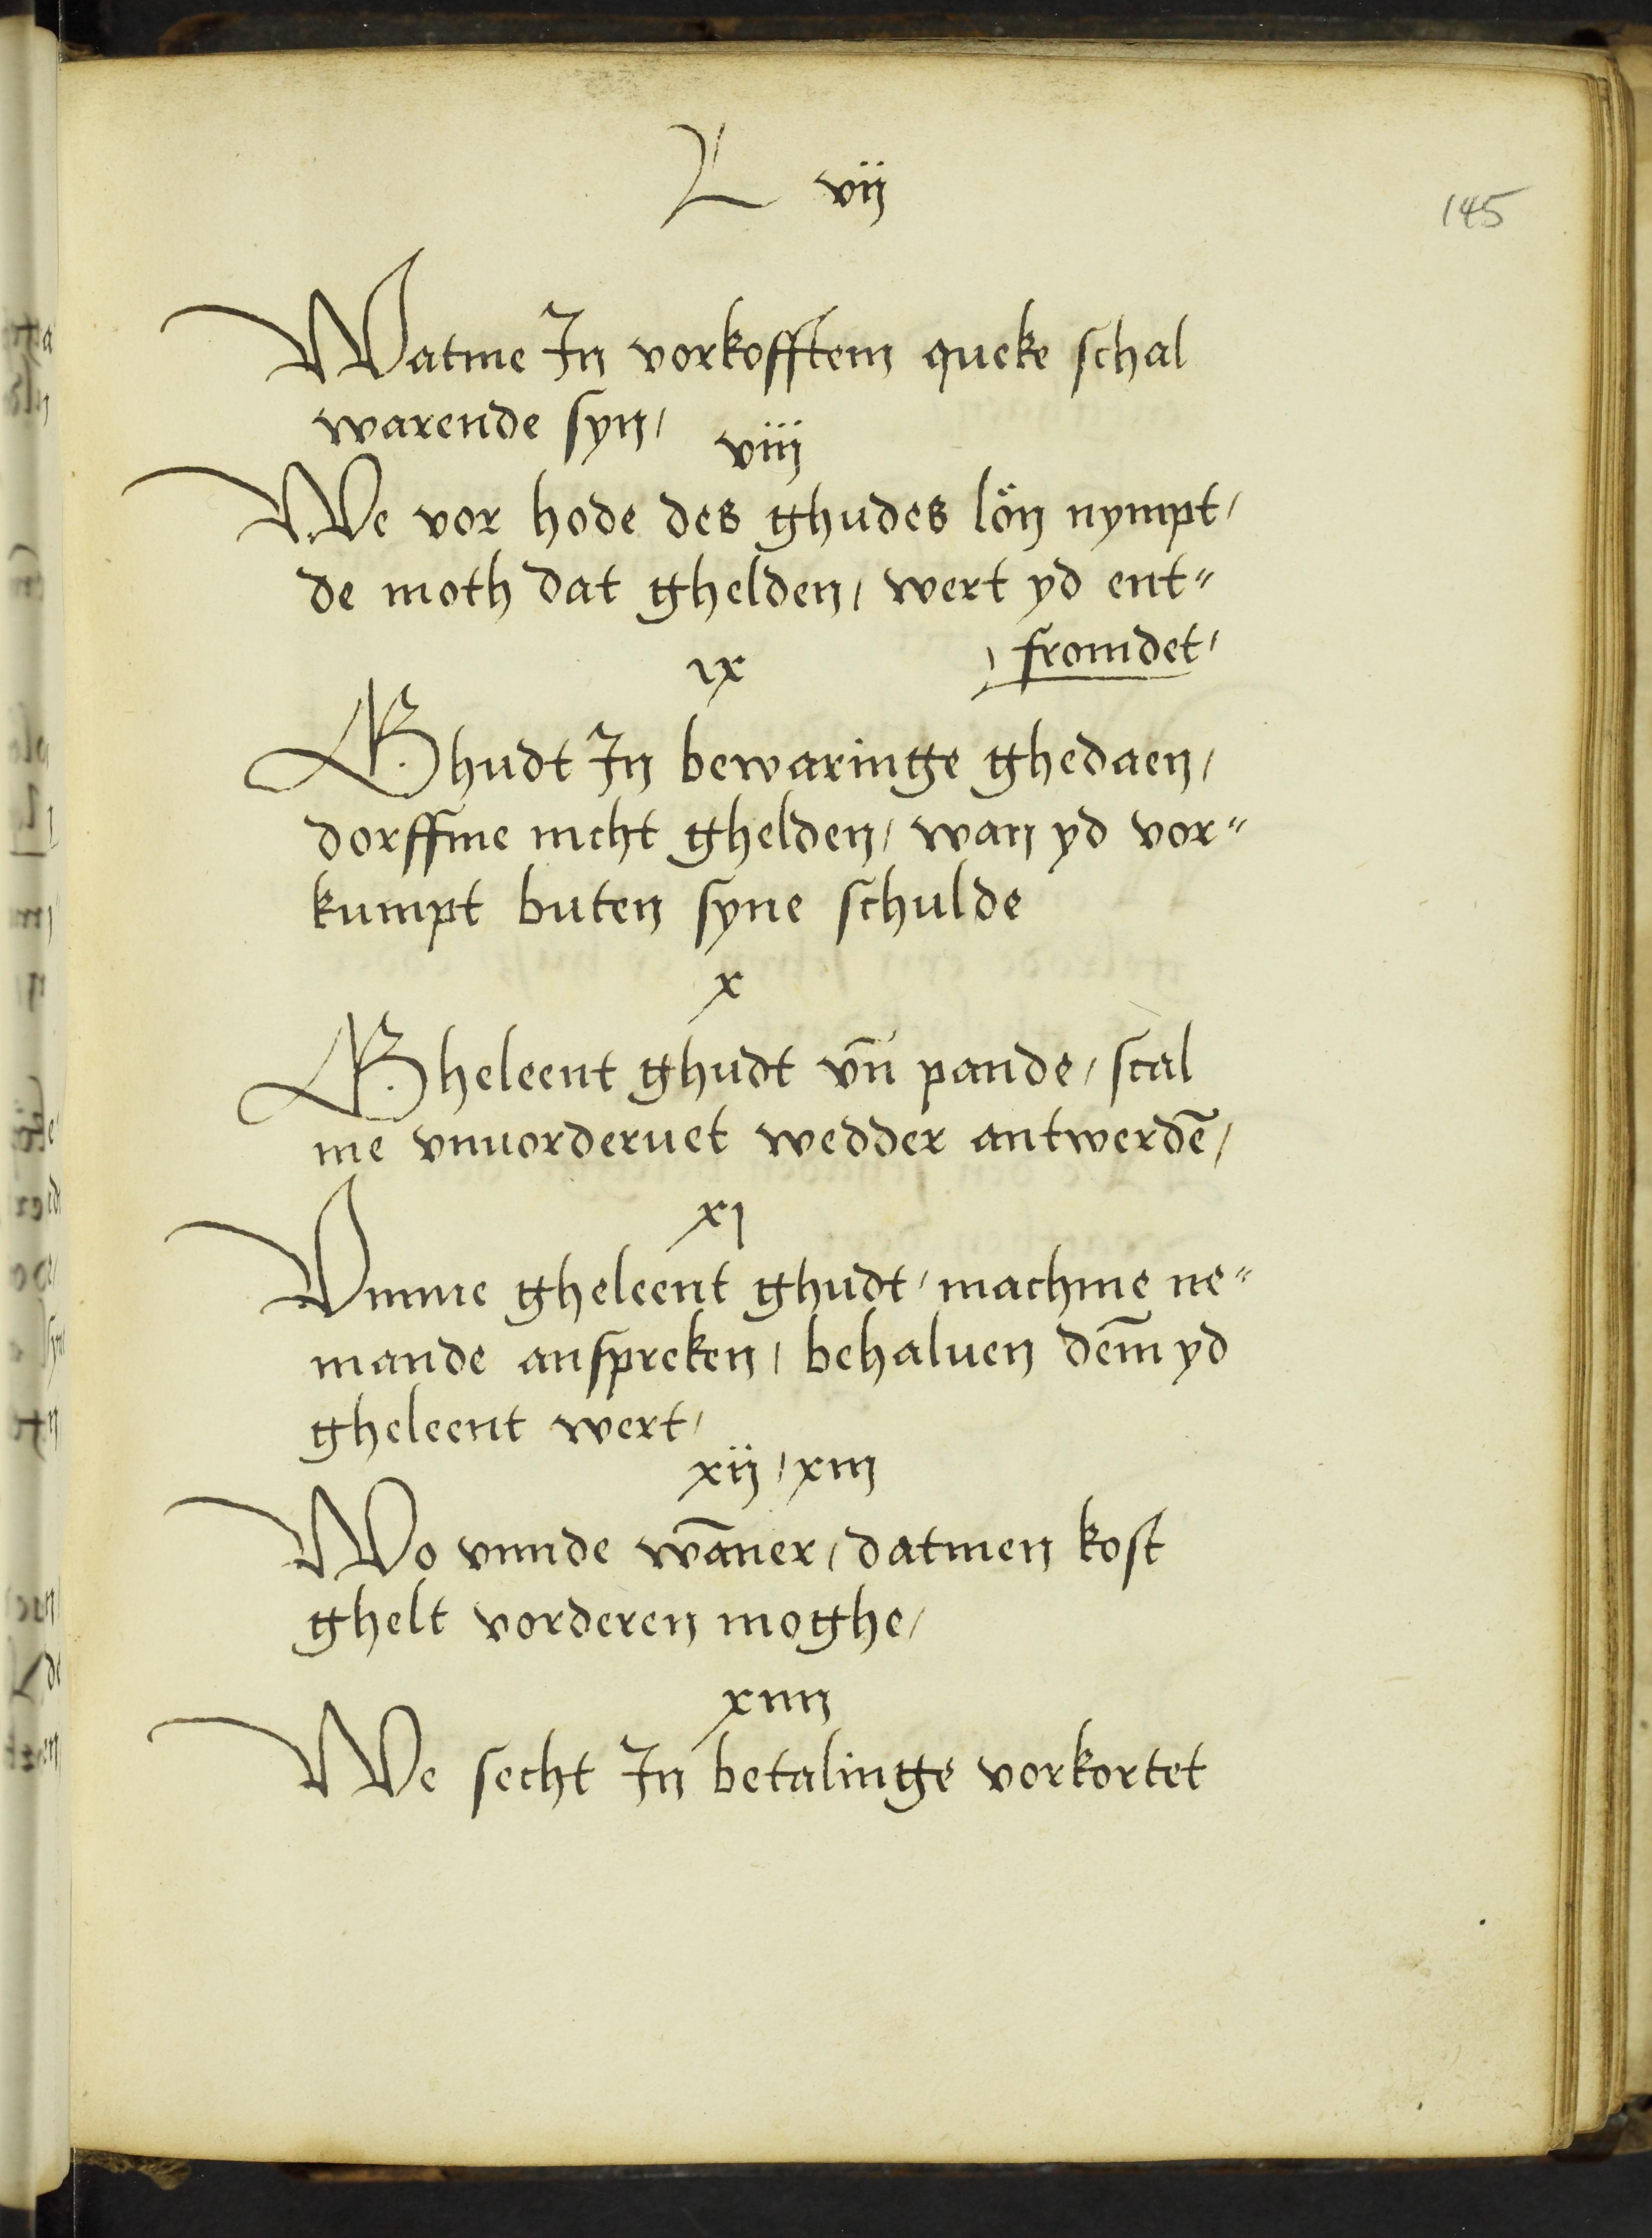 L vij
145
Watme In vorkofftem queke schal
warende syn /
viij
We vor hode des ghudes lön nympt /
de moth dat ghelden / wert yd ent"
fromdet /
ix
Ghudt In bewaringe ghedaen /
dorffme nicht ghelden / wan yd vor"
kumpt buten syne schulde
x
Gheleent ghudt vn̄ pande / scal
me vnuorderuet wedder antwerdē /
xj
Vmme gheleent ghudt / machme ne"
mande anspreken / behaluen dem̄ yd
gheleent wert /
xij / xiij
Wo vnnde wāner / datmen kost
ghelt vorderen moghe /
xiiij
We secht In betalinge vorkortet